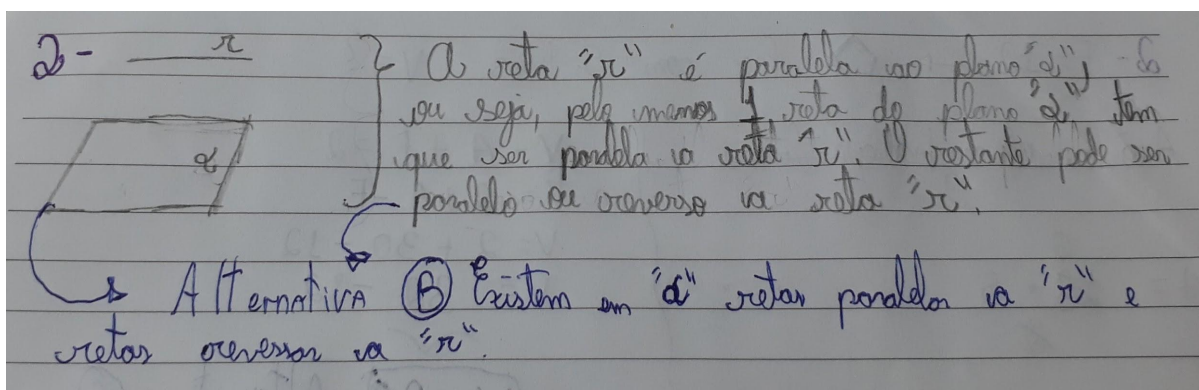 2- r
A reta "r" é paralela ao plano "α",
ou seja, pelo menos 1 reta do plano "α" tem
α
que ser paralela a reta "r". O restante pode ser
paralelo ou reverso a reta "r".
Alternativa B Existem em "α" retas paralelas a "r" e
retas reversas a "r".